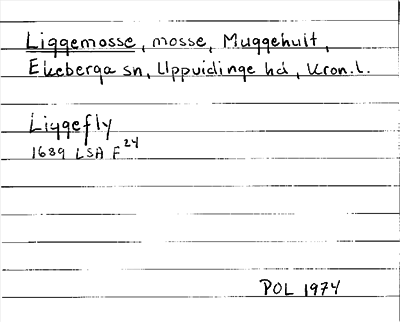 Liggemosse, mosse, Muggehult,
Ekeberga sn, Uppvidinge hd, Kron.l.
Liggefly
1689 LSA F 24
POL 1974